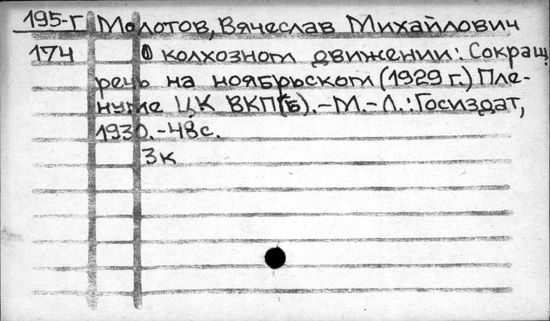 195-Г Молотов, Вячеслав Михайлович
174 О колхозном движении: Сокращ
речь на ноябрьском (1929 г.) Пле-
нуме ЦК ВКП(б).-М.-Л.: Госиздат,
1930.-48с.
3к